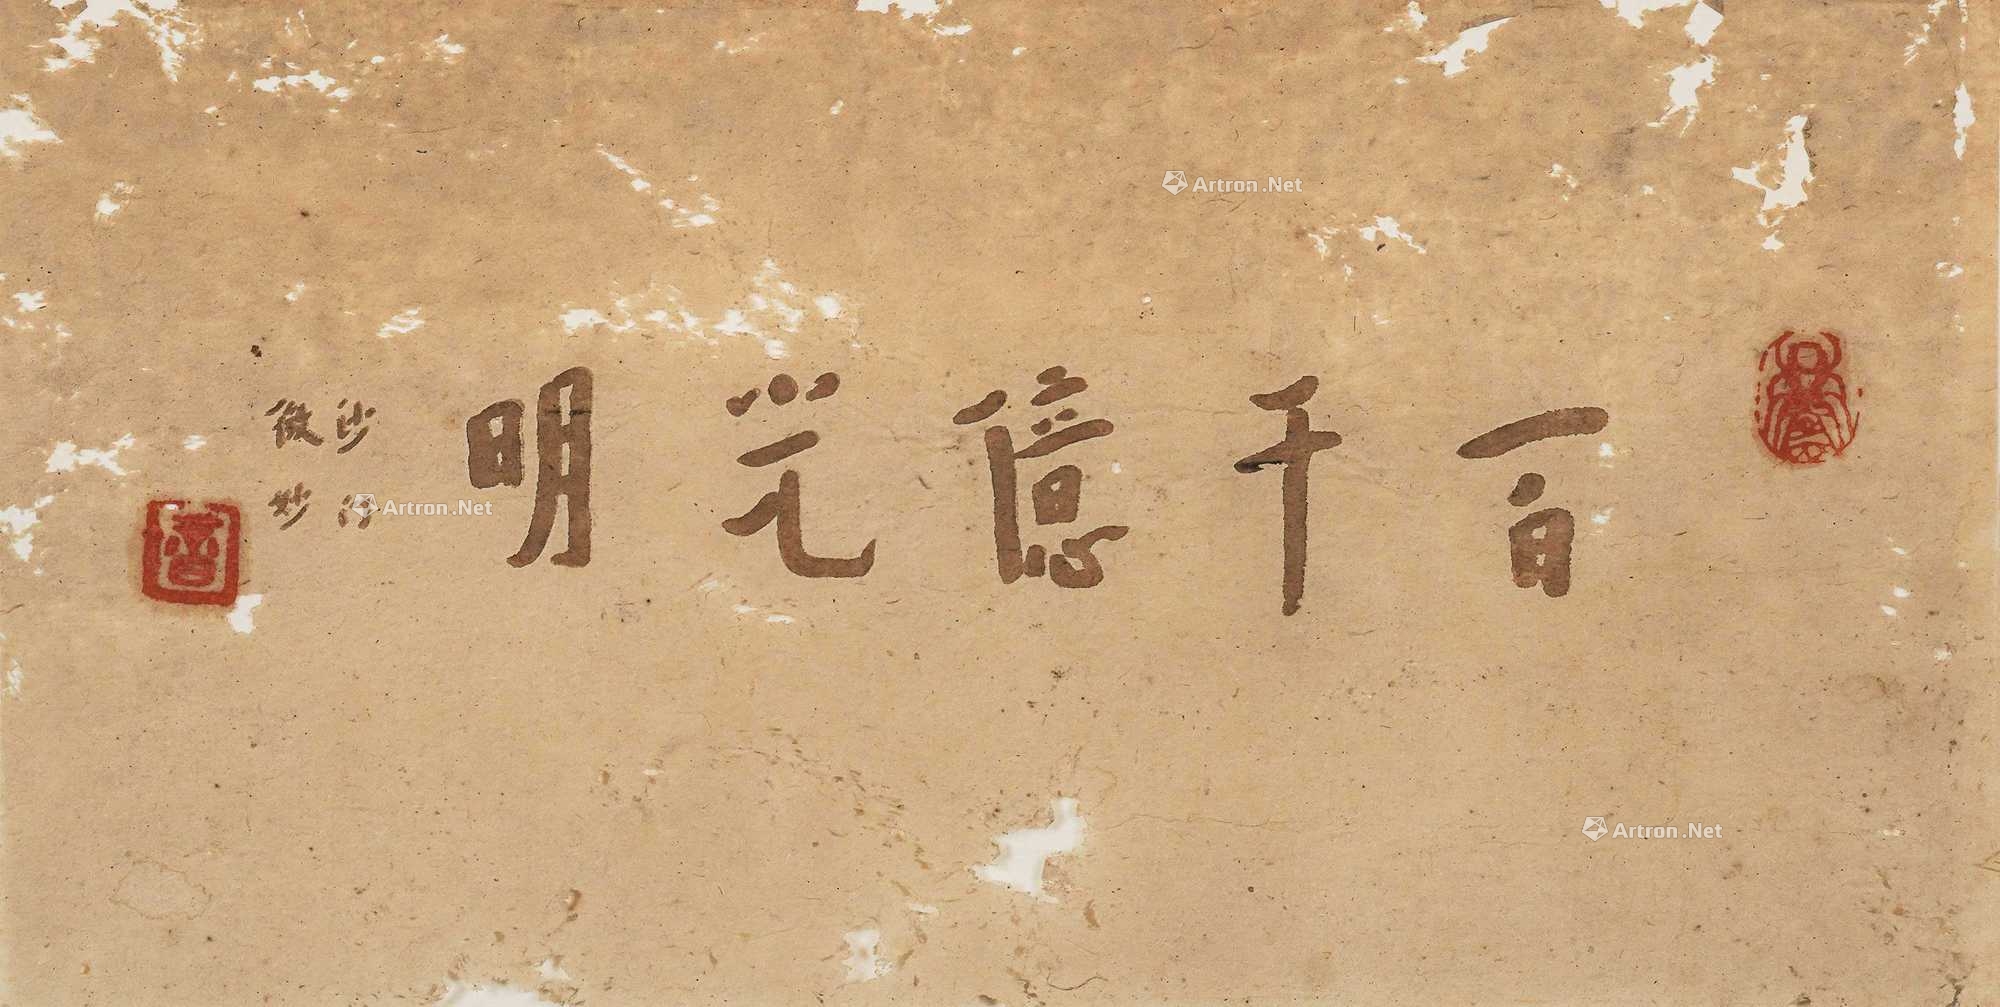 百千億光明
沙
微妙
Artron.Net
Artron.Net
Artron.Net